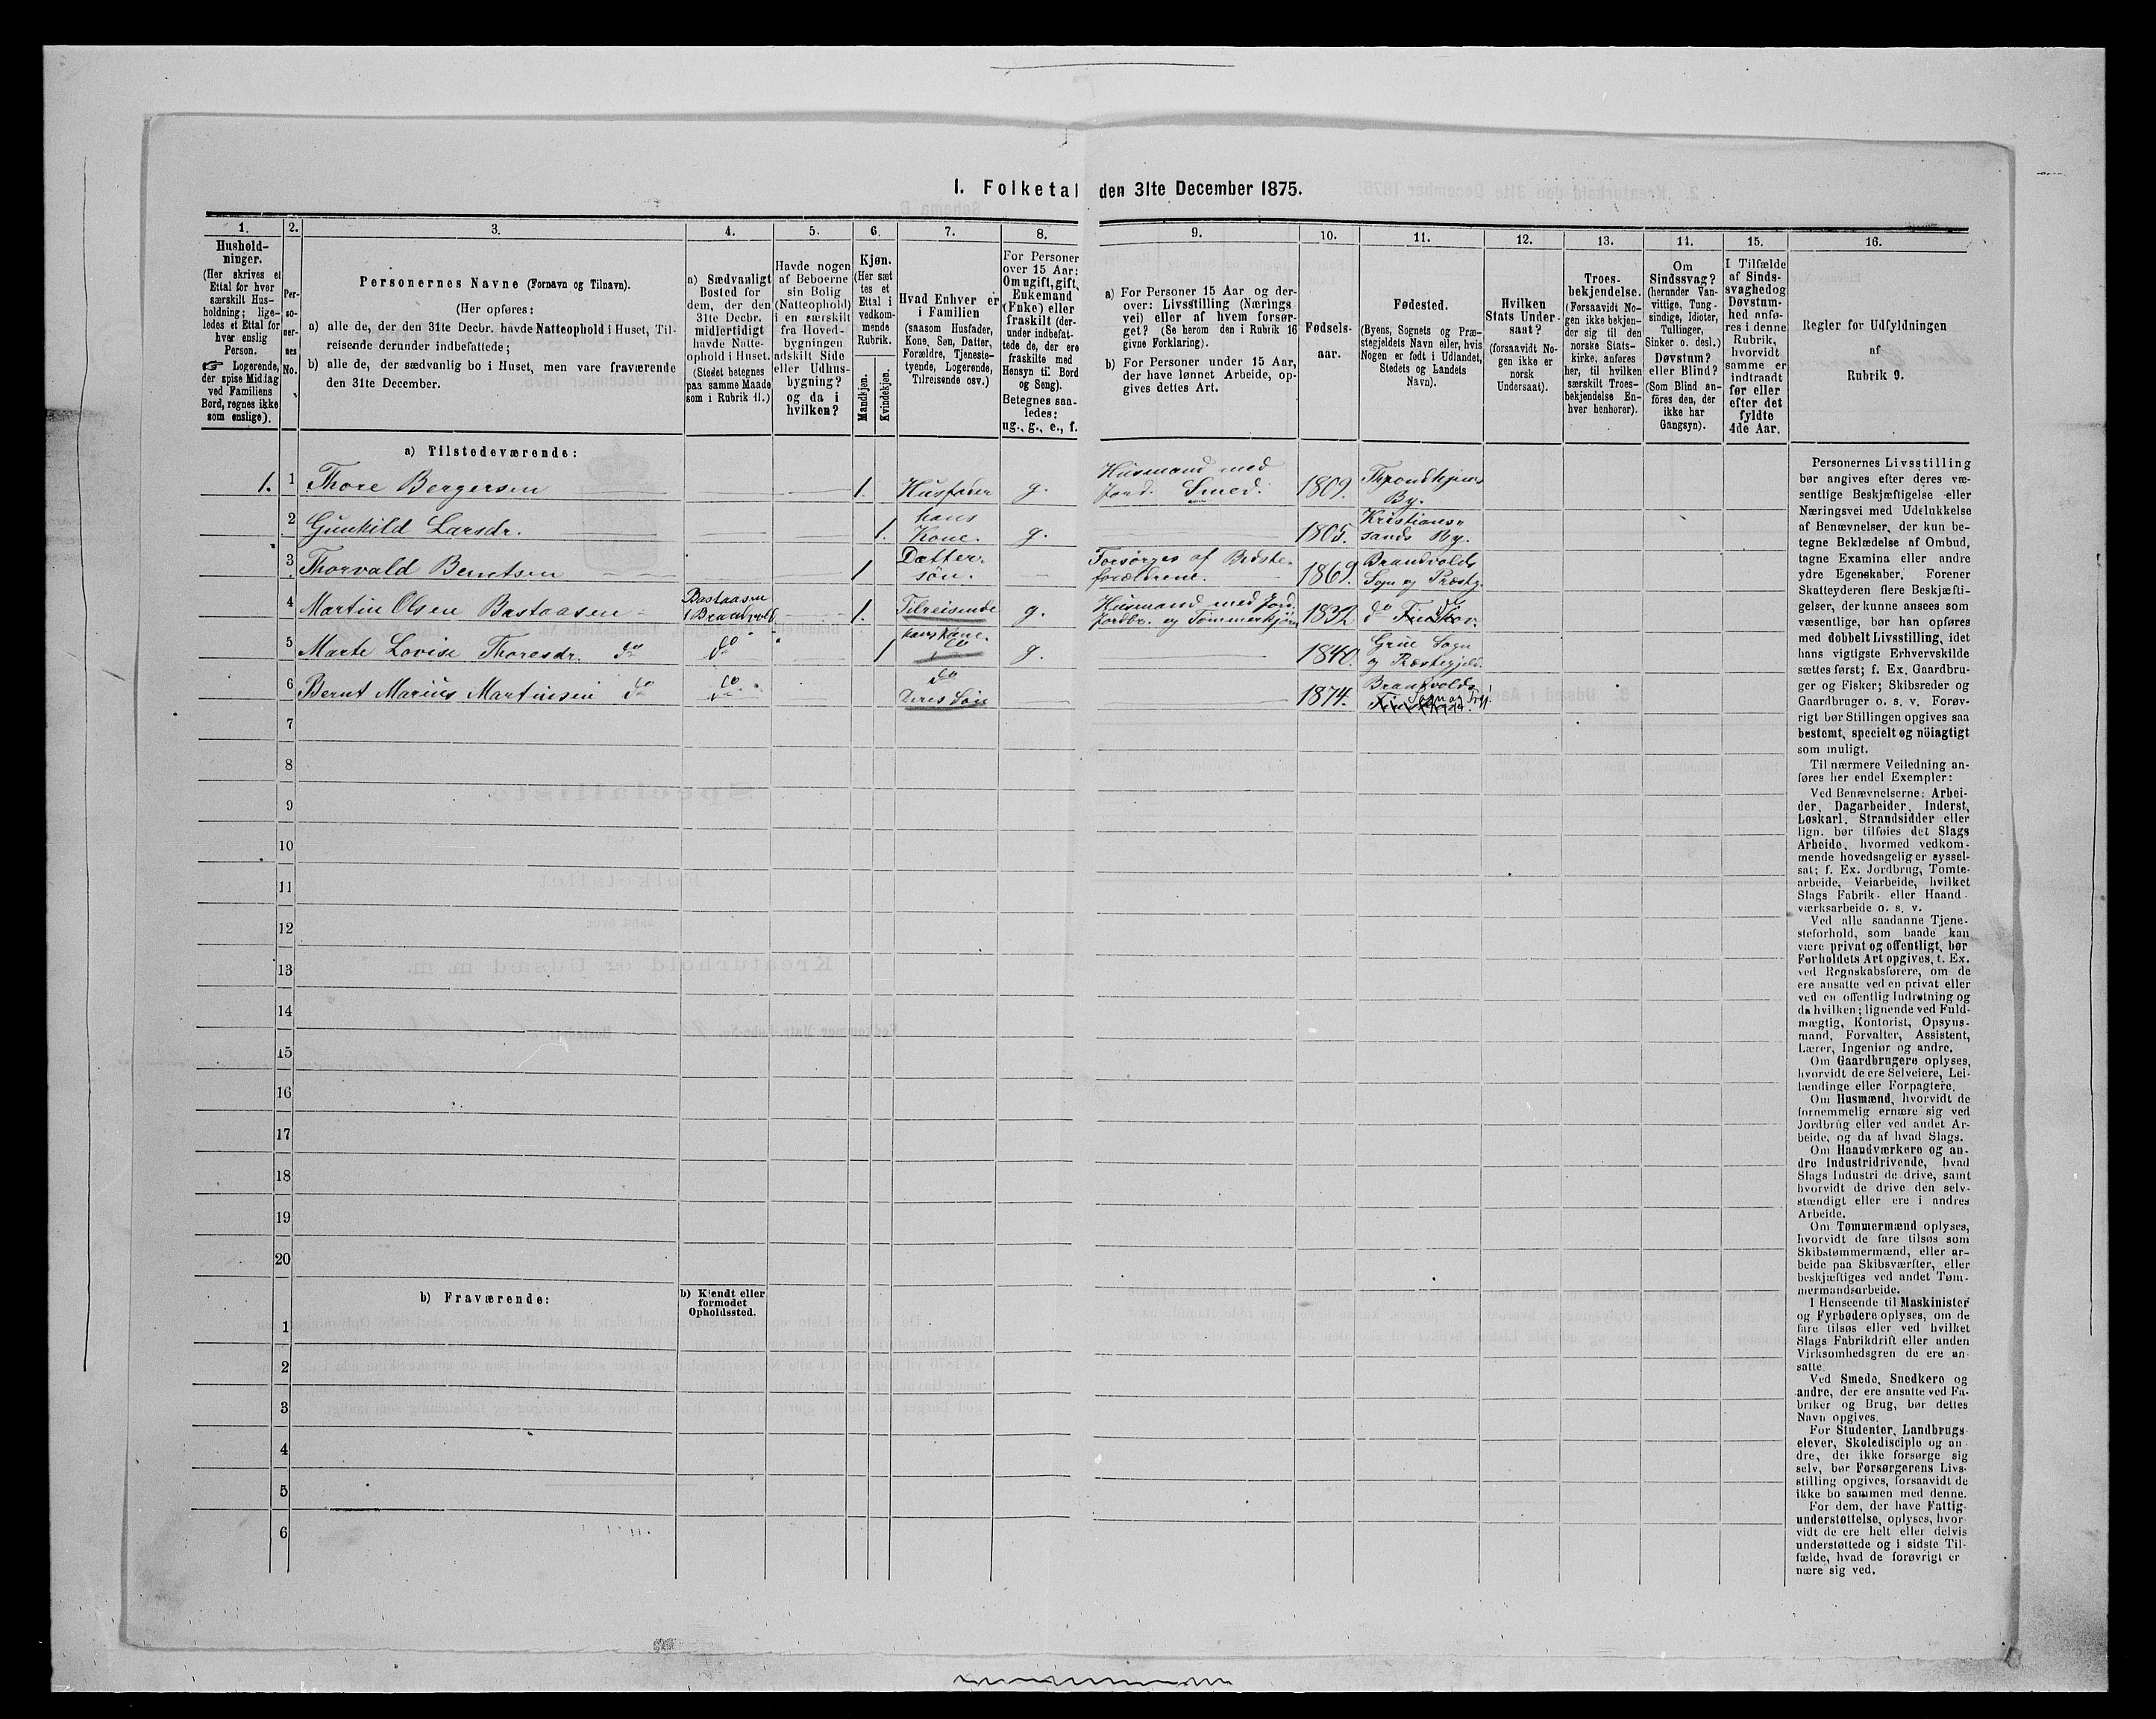 1. Folketal den 31te December 1875.
1.
Hushold-
ninger.
(Her skrives et
Ettal for hver
særskilt Hus-
holdning; lige-
ledes et Ettal for
hver enslig
Person.
☞ Logerende,
der spise Middag
ved Familiens
Bord, regnes ikke
som enslige).
2.
Per-
so-
ner-
nes
No.
3.
Personernes Navne (Fornavn og Tilnavn).
(Her opføres:
a) alle de, der den 31te Decbr. havde Natteophold i Huset, Til-
reisende derunder indbefattede;
b) alle de, der sædvanlig bo i Huset, men vare fraværende
den 31te December.
4.
a) Sædvanligt
Bosted for
dem, der den
31te Decbr.
midlertidigt
havde Natte-
ophold i Huset.
(Stedet betegnes
paa samme Maade
som i Rubrik 11.)
5.
Havde nogen
af Beboerne
sin Bolig
(Natteophold)
i en særskilt
fra Hoved-
bygningen
adskilt Side
eller Udhus-
bygning?
og da i
hvilken?
6.
Kjøn.
(Her sæt
tes et
Ettal i
vedkom-
mende
Rubrik.
Mandkjøn.
Kvindekjøn.
7.
Hvad Enhver er
i Familien
(saasom Husfader,
Kone, Søn, Datter,
Forældre, Tjeneste-
tyende, Logerende,
Tilreisende osv.)
8.
For Personer
over 15 Aar:
Om ugift, gift,
Enkemand
(Enke) eller
fraskilt (der-
under indbefat-
tede de, der ere
fraskilte med
Hensyn til Bord
og Seng).
Betegnes saa-
ledes:
ug., g., e., f.
9.
a) For Personer 15 Aar og der-
over: Livsstilling (Nærings
vei) eller af hvem forsør-
get? (Se herom den i Rubrik 16
givne Forklaring).
b) For Personer under 15 Aar,
der have lønnet Arbeide, op-
gives dettes Art.
10.
Fødsels-
aar.
11.
Fødested.
(Byens, Sognets og Præ-
stegjeldets Navn eller, hvis
Nogen er født i Udlandet,
Stedets og Landets
Navn).
12.
Hvilken
Stats Under-
saat?
(forsaavidt No-
gen ikke er
norsk
Undersaat).
13.
Troes-
bekjendelse.
(Forsaavidt No-
gen ikke bekjen-
der sig til den
norske Stats-
kirke, anføres
her, til hvilken
særskilt Troes-
bekjendelse En-
hver henhører).
14.
Om
Sindssvag?
(herunder Van-
vittige, Tung-
sindige, Idioter,
Tullinger,
Sinker o. desl.)
Døvstum?
eller Blind?
(Som Blind an-
föres den, der
ikke har
Gangsyn).
15.
I Tilfælde
af Sinds-
svaghed og
Døvstum-
hed anfø-
res i denne
Rubrik,
hvorvidt
samme er
indtraadt
før eller
efter det
fyldte
4de Aar.
16.
Regler for Udfyldningen
af
Rubrik 9.
a) Tilstedeværende:
1. 1 Thore Bergersen 1. Husfader g. Husmand med Jord. Smed. 1809. Throndhjems By.
2 Gunhild Larsdr. 1. hans Kone. g. 1805. Kristiansands By.
3 Thorvald Berntsen 1 Dattersøn. Forsørges af Bedsteforældrene. 1869. Brandvolds Sogn og Præstg.
4 Martin Olsen Bastaasen Bastaasen i Brandvold 1. Tilreisende g. Husmand med Jord. Jordbr. og Tømmerkjører 1832 do
5 Marte Lovise Thoresdr. do do 1 hans Kone. do g. 1840. Grue Sogn og Præstegjeld.
6 Bernt Marius Martinsen do do do Deres Søn 1874. Brandvolds Sogn og
7
8
9
10
11
12
13
14
15
16
17
18
19
20
b) Fraværende:
b) Kjendt eller
formodet
Opholdssted.
1
2
3
4
5
6
Personernes Livsstilling
bør angives efter deres væ-
sentlige Beskjæftigelse eller
Næringsvei med Udelukkelse
af Benævnelser, der kun be-
tegne Beklædelse af Ombud,
tagne Examina eller andre
ydre Egenskaber. Forener
Skatteyderen flere Beskjæfti-
gelser, der kunne ansees som
væsentlige, bør han opføres
med dobbelt Livsstilling, idet
hans vigtigste Erhvervskilde
sættes først; f. Ex. Gaardbru-
ger og Fisker; Skibsreder og
Gaardbruger o. s. v. Forøv-
rigt bør Stillingen opgives saa
bestemt, specielt og nöiagtigt
som muligt.
Til nærmere Veiledning an-
føres her endel Exempler:
Ved Benævnelserne: Arbei-
der, Dagarbeider, Inderst,
Løskarl, Strandsidder eller
lign. bør tilføies det Slags
Arbeide, hvormed vedkom-
mende hovedsageliger syssel-
sat; f. Ex. Jordbrug, Tomte-
arbeide, Veiarbeide, hvilket
Slags Fabrik- eller Haand-
værksarbeide o. s. v.
Ved alle saadanne Tjene-
steforhold, som baade kan
være privat og offentligt, bør
Forholdets Art opgives, f. Ex.
ved Regnskabsførere, om de
ere ansatte ved en privat eller
ved en offentlig Indretning og
da hvilken; lignende ved Fuld-
mægtig, Kontorist, Opsyns-
mand, Forvalter, Assistent,
Lærer, Ingeniør og andre.
Om Gaardbrugere oplyses,
hvorvidt de ere Selveiere, Lei-
lændinge eller Forpagtere.
Om Husmænd, hvorvidt de
fornemmelig ernære sig ved
Jordbrug eller ved andet Ar-
beide, og da af hvad Slags.
Om Haandværkere og an-
dre Industridrivende, hvad
Slags Industri de drive, samt
hvorvidt de drive den selv-
stændigt eller ere i andres
Arbeide.
Om Tømmermænd oplyses,
hvorvidt de fare tilsøs som
Skibstømmermænd, eller ar-
beide paa Skibsværfter, eller
beskjæftiges ved andet Tøm-
mermandsarbeide.
I Henseende til Maskinister
og Fyrbødere oplyses, om de
fare tilsøs eller ved hvilket
Slags Fabrikdrift eller anden
Virksomhedsgren de ere an-
satte.
Ved Smede, Snedkere og
andre, der ere ansatte ved Fa-
briker og Brug, bør dettes
Navn opgives.
For Studenter, Landbrugs-
elever, Skoledisciple og an-
dre, der ikke forsørge sig
selv, bør Forsørgerens Livs-
stilling opgives, forsaavidt de
ikke bo sammen med denne.
For dem, der have Fattig-
understøttelse, oplyses, hvor-
vidt de ere helt eller delvis
understøttede og i sidste Til-
fælde, hvad de forøvrigt er-
nære sig ved.